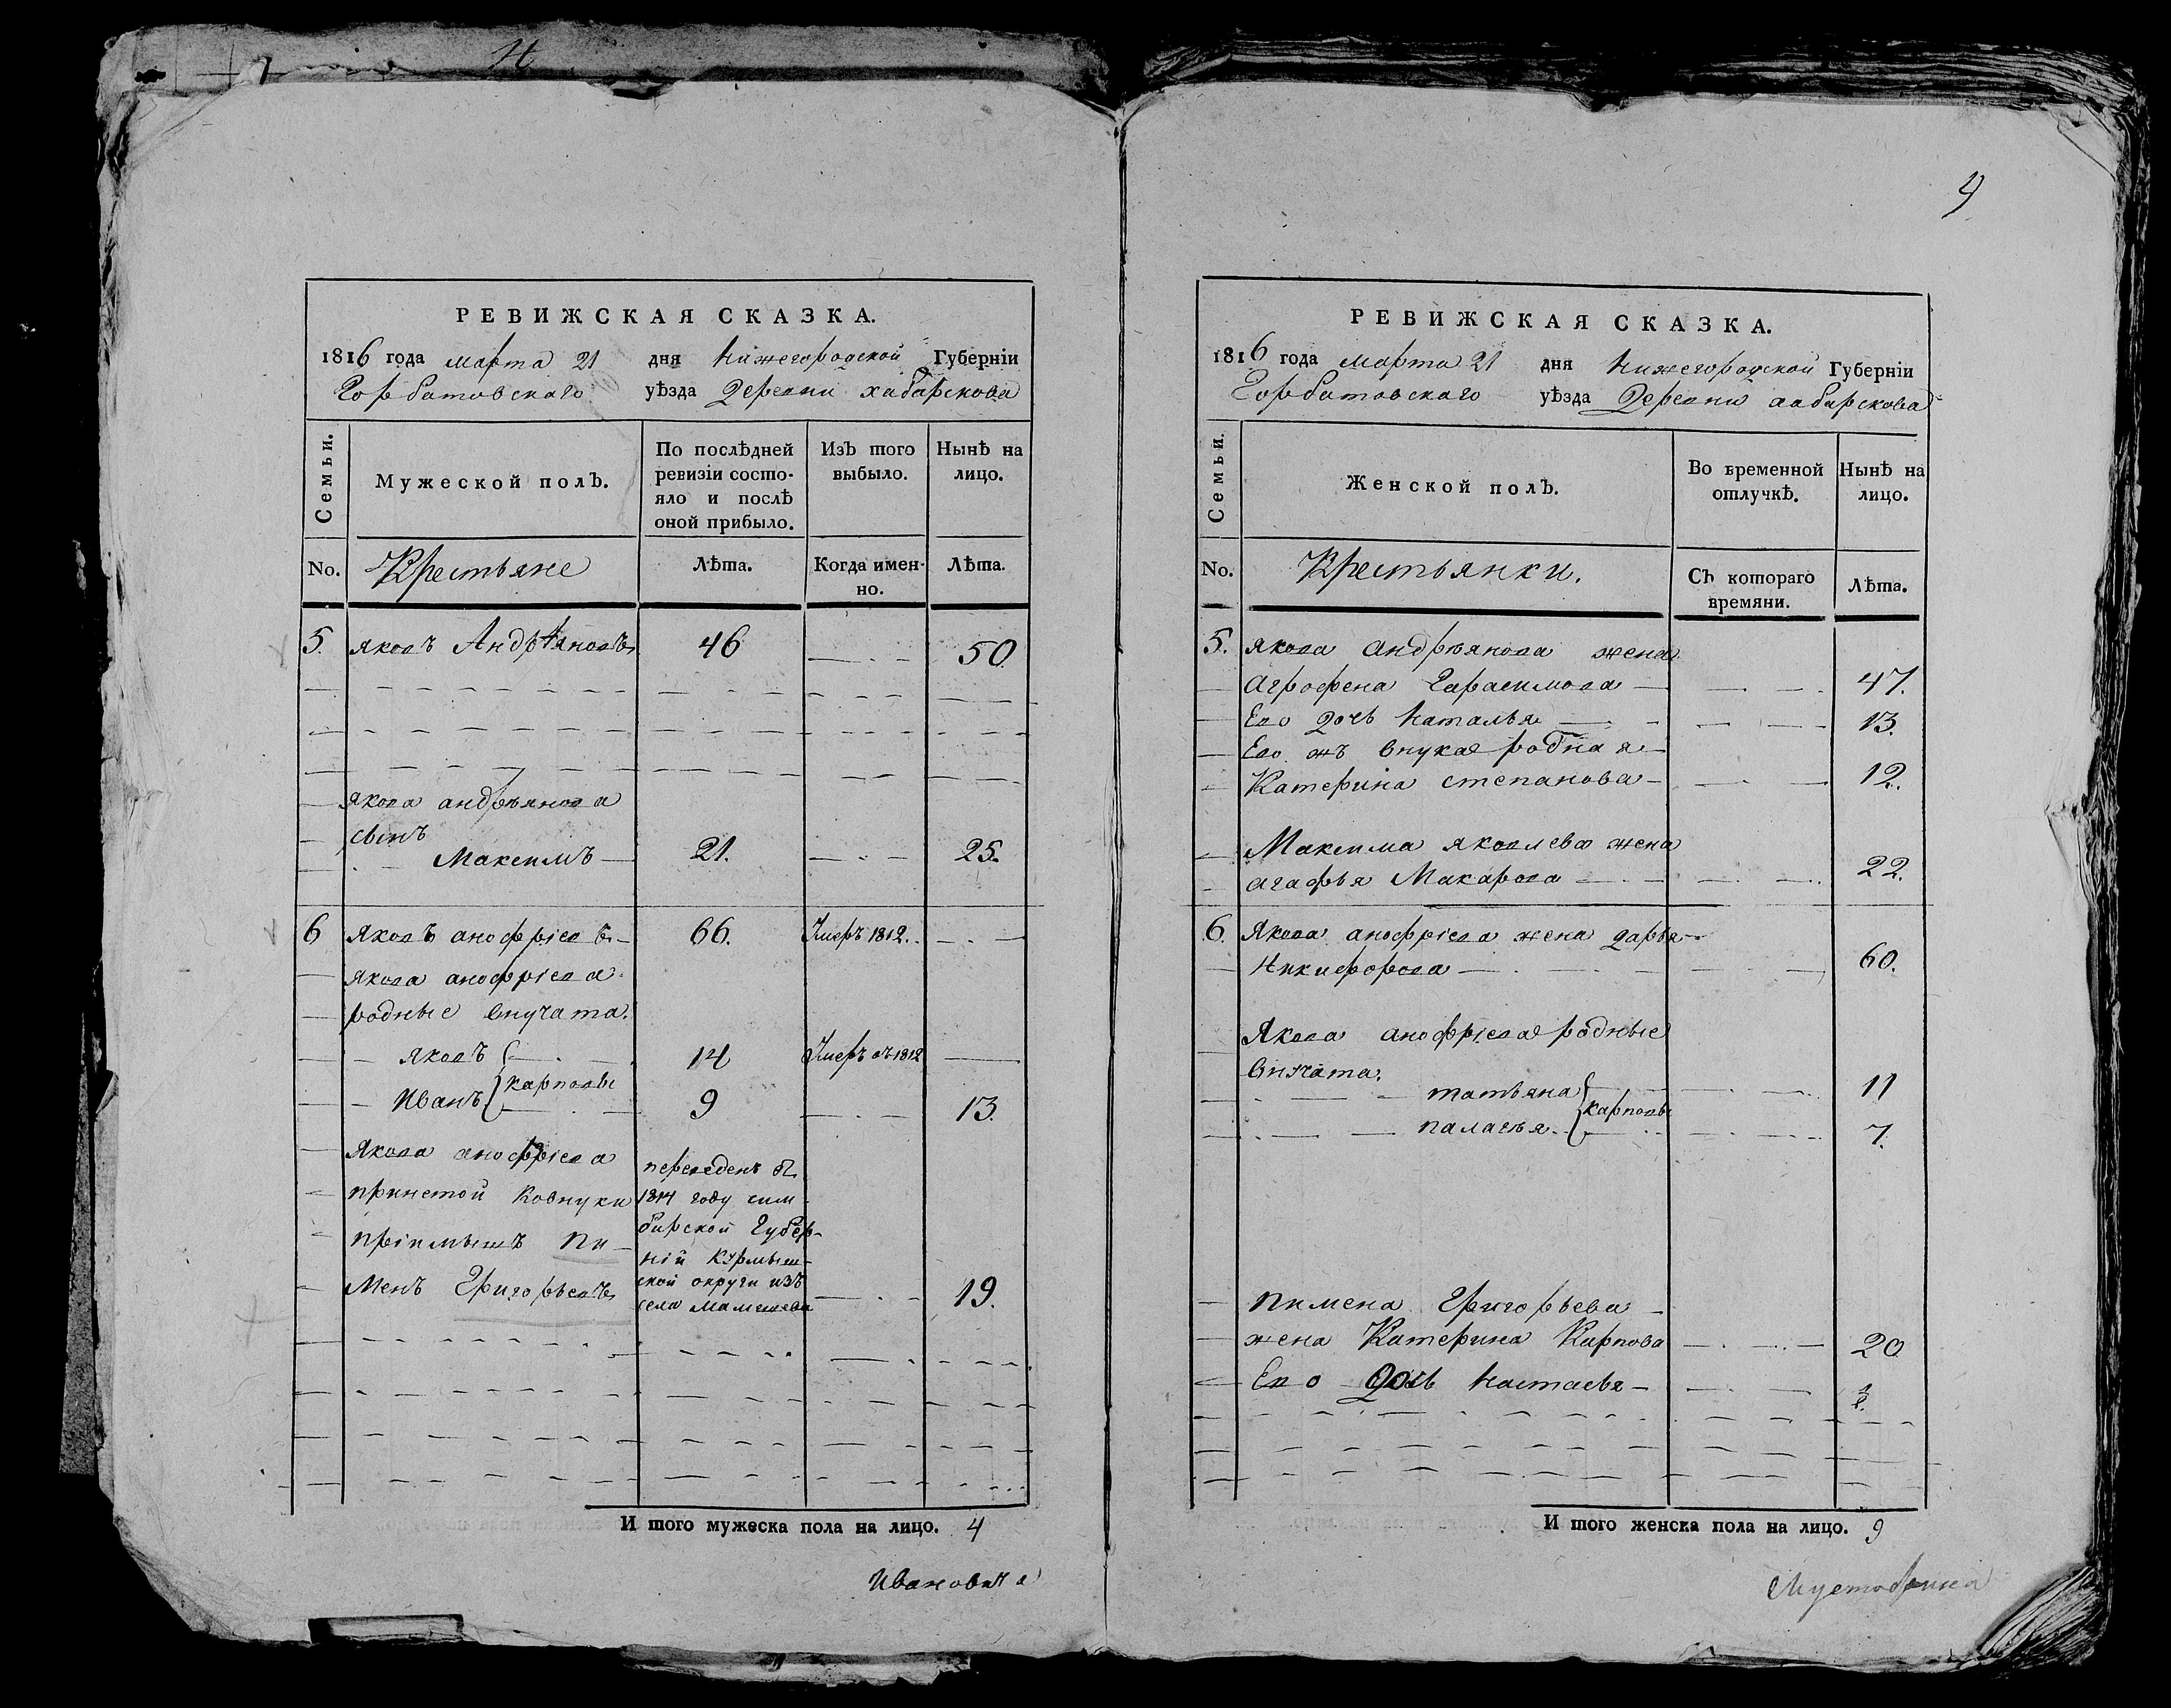 Н
РЕВИЖСКАЯ СКАЗКА.
1816 года марта 21 дня Нижегородской Губерніи
Горбатовского уѣзда Деревни хабарскова
Семьи.
Мужеской полъ.
По послѣдней ревизіи состо-
яло и послѣ
оной прибыло.
Изъ того
выбыло.
Нынѣ на
лицо.
No.
Крестьяне
Лѣта.
Когда имен-
но.
Лѣта.
5. яковъ Андрѣяновъ 46 50
якова андрѣянова
сынъ
Максимъ 21. 25.
6 Яковъ анофріевъ 66. Умеръ 1812.
якова анофріева
родные внучата.
яковъ 14 Умеръ въ 1812
Иванъ } карповы 9 13.
Якова анофріева
принетой вовнуки
пріимышъ пи-
менъ Григорьевъ 19.
переведенъ въ
1814 году сим-
бирской Губер-
ніи Курмыш-
ской округи изъ
села
И того мужеска пола на лицо. 4
Ивановича
4
РЕВИЖСКАЯ СКАЗКА.
1816 года марта 21 дня Нижегородской Губерніи
Горбатовского уѣзда Деревни хабарскова
Семьи.
Женской полъ.
Во временной
отлучкѣ.
Нынѣ на
лицо.
No.
Крестьянки.
Съ котораго
времяни.
Лѣта.
5. якова андрѣянова жена
Агрофена Гарасимова 47.
Ево дочь Наталья 13.
Ево жъ внука родная
Катерина степанова 12.
Максима яковлева жена
агафья Макарова 22.
6. Якова анофріева жена дарья
Никифорова 60.
Якова анофріева родные
внучата.
татьяна 11
палагья } карповы 7.
пимена Григорьева
жена Катерина Карпова 20
Ево Дочь Настасья
И того женска пола на лицо. 9